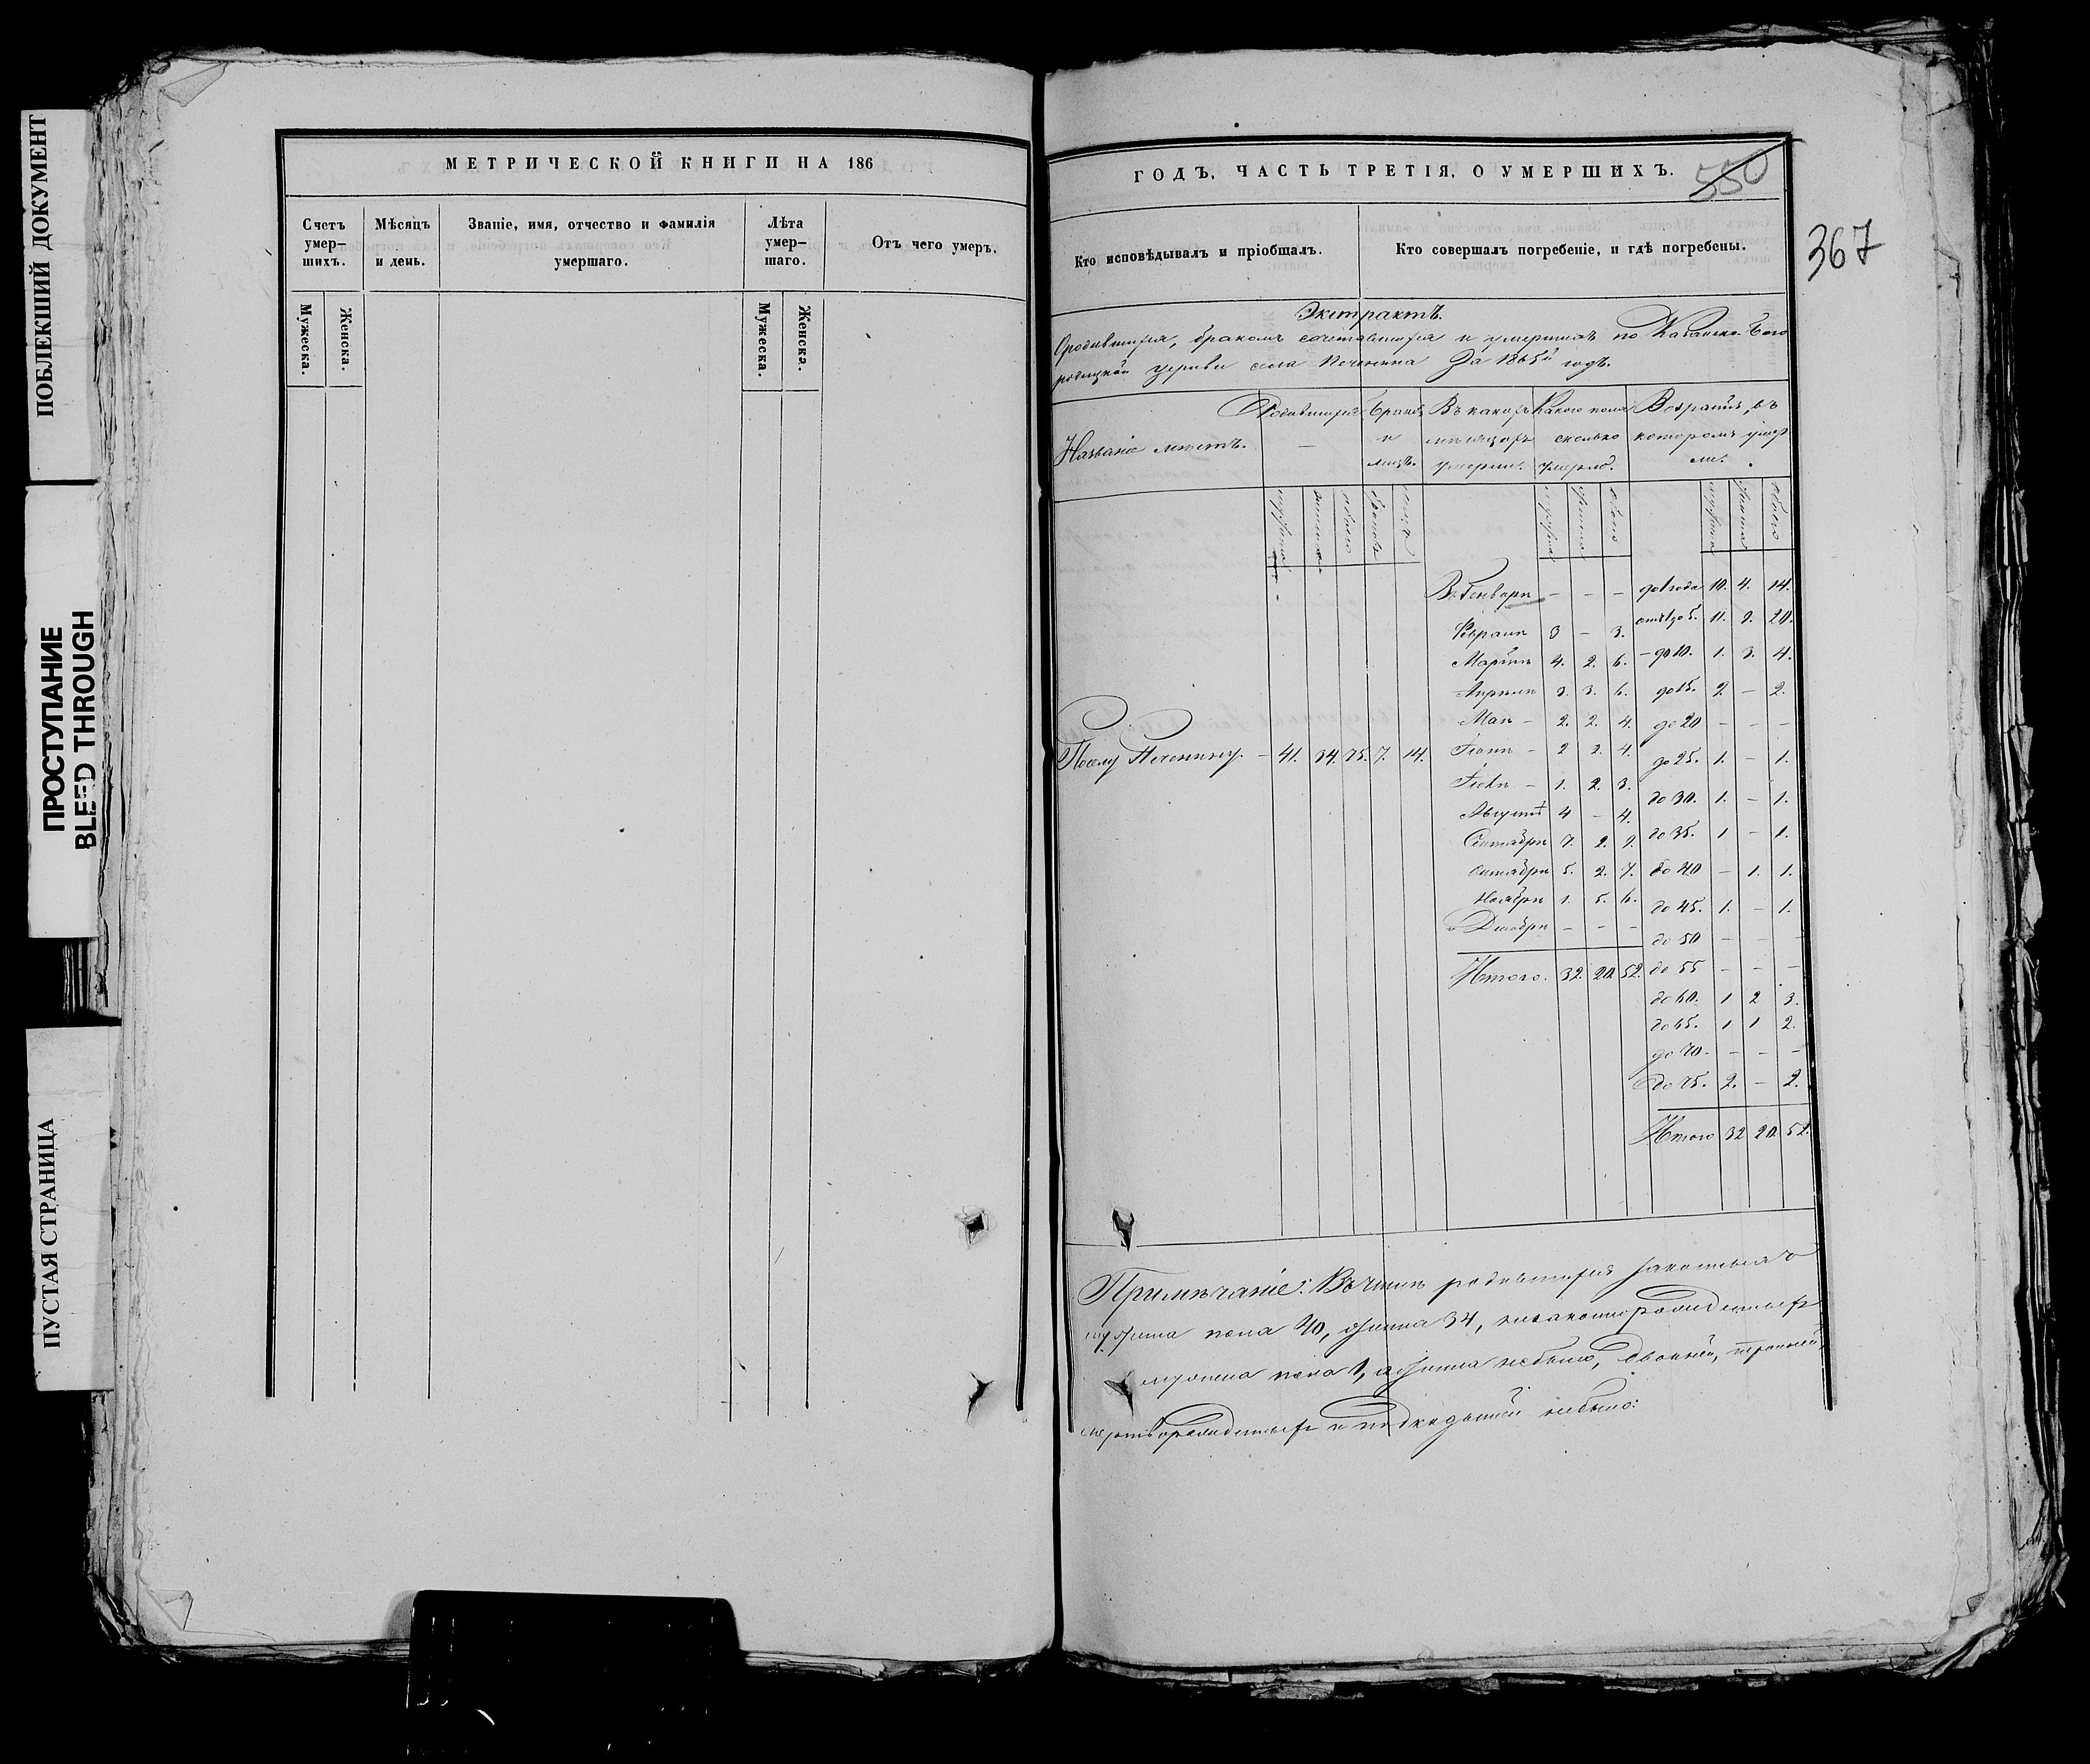 ПОБЛЕКШИЙ ДОКУМЕНТ
ПРОСТУПАНИЕ
BLEED THROUGH
ПУСТАЯ СТРАНИЦА
МЕТРИЧЕСКОЙ КНИГИ НА 186
Счетъ умер–шихъ.
Мѣсяцъ и день.
Званіе, имя, отчество и фамилія умершаго.
Лѣта умер–шаго.
Отъ чего умеръ.
Мужеска.
Женска.
Мужеска.
Женска.
ГОДЪ, ЧАСТЬ ТРЕТІЯ, О УМЕРШИХЪ.
550
367
Кто исповѣдывалъ и пріобщалъ.
Кто совершалъ погребеніе, и гдѣ погребены.
Экстрактъ.
О родившихся, бракомъ сочетавшихся и умершихъ по Казанско-Бого
родицкой церкви села за 1865й годъ.
Названіе мѣстъ.
Родившихся
Браковъ и лицъ.
Въ какихъ мѣсяцахъ умерли.
Какого пола сколько умерло.
Возрастъ, въ которомъ умерли.
мужеска женска обоего браковъ лицъ
мужеска женска обоего
мужеска женска обоего
Въ Генварѣ – – – до 1 года 10. 4. 14.
Февралѣ 3 – 3. отъ 1 до 5. 11. 9. 20.
Мартѣ 4. 2. 6. – до 10. 1. 3. 4.
Апрѣлѣ 3. 3. 6. до 15. 2 – 2.
Маѣ – 2. 2. 4. до 20 – – –
По селу – 41. 34. 75. 7. 14.
Іюнѣ – 2 2. 4. до 25. 1. – 1.
Іюлѣ – 1. 2. 3. до 30. 1. – 1.
Августѣ 4 – 4. до 35. 1 – 1.
Сентябрѣ 7. 2. 9. до 40 – 1. 1.
Октябрѣ 5. 2. 7. до 45. 1. – 1.
Ноябрѣ 1. 5. 6. до 50 – – –
и Декабрѣ – – – до 55 – – –
Итого. 32. 20. 52.
до 60. 1 2 3.
до 65. 1 1 2.
до 70. – – –
до 75. 2. – 2.
Итого 32 20. 52.
Примѣчаніе: Въ числѣ родившихся законныхъ
мужеска пола 40, женска 34, незаконнорожденныхъ
мужеска пола 1, а женска небыло, двойней, тройней,
мертворожденныхъ и подкидышей небыло: